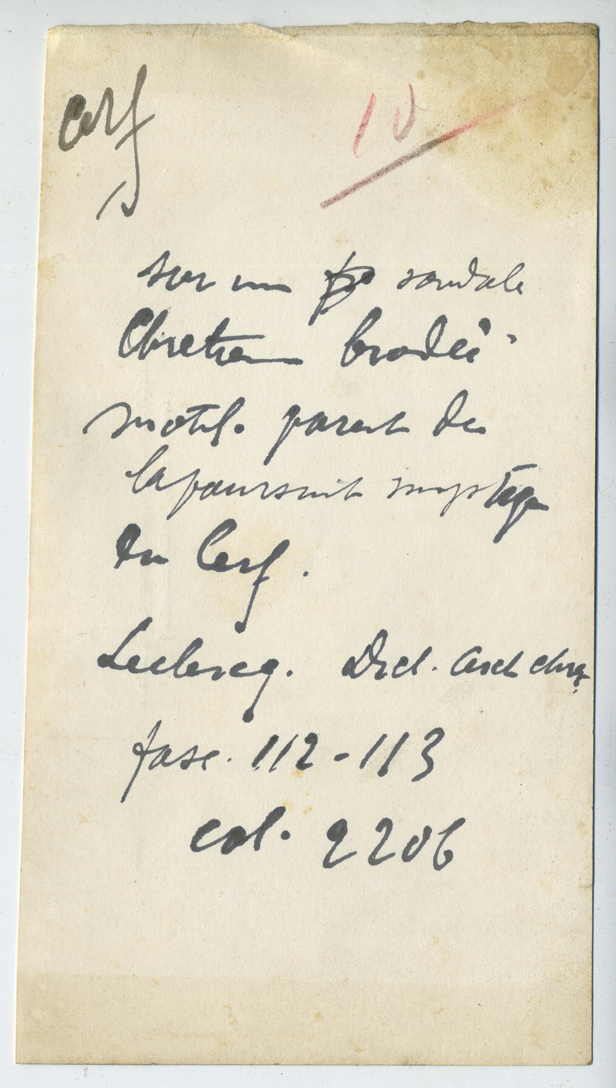 cerf
10
sur un sandale
Chretien brodée
motif. parent de
la poursuite mystique
du Cerf.
Leclercq. Dict. arch chre
fasc. 112-113
col. 2206